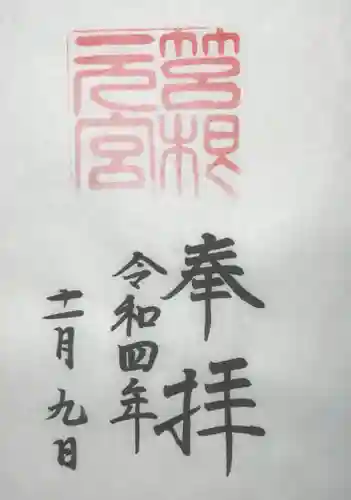 筥根
元宮
奉拝
令和四年
十一月九日